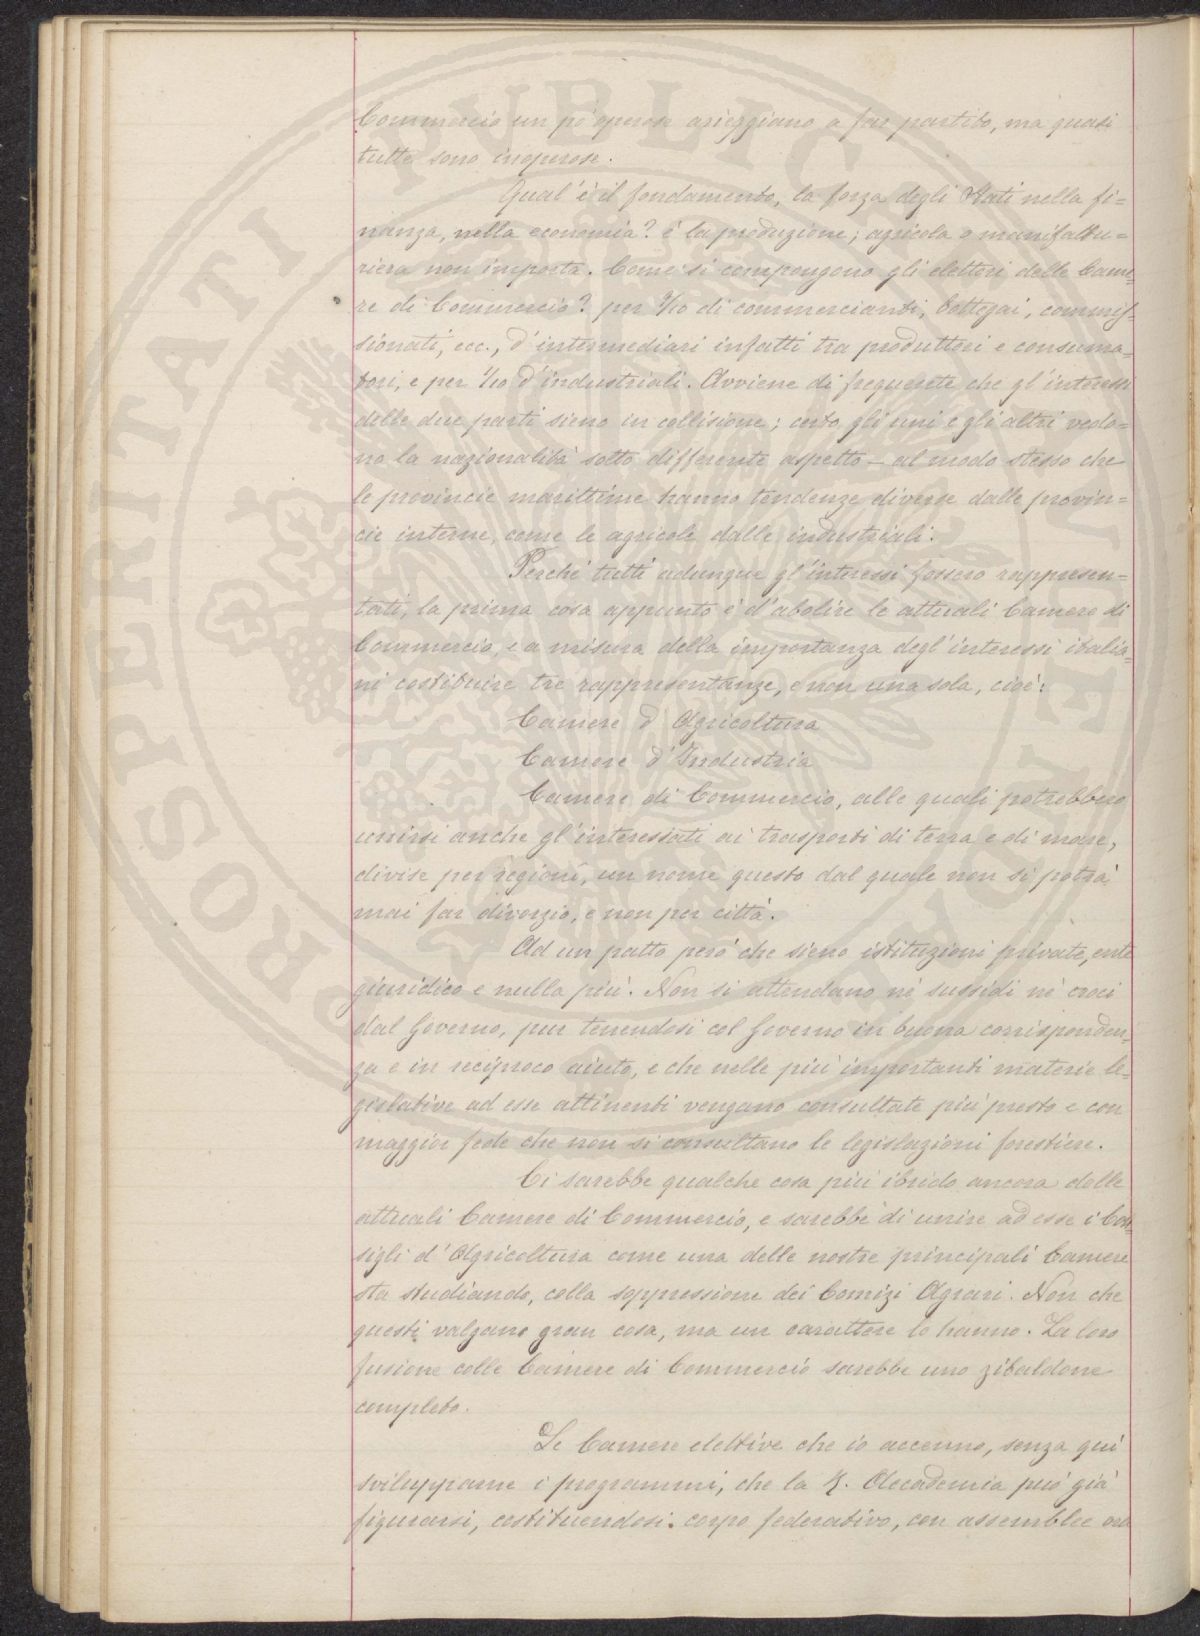 Commercio un pò operose arieggiano a far partito, ma quasi
tutte sono inoperose.
Qual'è il fondamento, la forza degli Stati nella fi=
nanza, nella economia? è la produzione; agricola o manifattu=
riera non importa. Come si compongono gli elettori delle Came=
re di Commercio? per 9/10 di commercianti, bottegai, commis=
sionati, ecc., d'intermediari infatti tra produttori e consuma=
tori, e per 1/10 d'industriali. Avviene di frequente che gl'interessi
delle due parti sieno in collisione; certo gli uni e gli altri vedo=
no la nazionalità sotto differente aspetto — al modo stesso che
le provincie marittime hanno tendenze diverse dalle provin=
cie interne, come le agricole dalle industriali.
Perché tutti adunque gl'interessi fossero rappresen=
tati, la prima cosa appunto è d'abolire le attuali Camere di
Commercio, e a misura della importanza degl'interessi italia=
ni costituire tre rappresentanze, e non una sola, cioè:
Camere d'Agricoltura
Camere d'Industria
Camere di Commercio, alle quali potrebbero
unirsi anche gl'interessati ai trasporti di terra e di mare,
divise per regioni, un nome questo dal quale non si potrà
mai far divorzio, e non per città.
Ad un patto però che sieno istituzioni private, ente
giuridico e nulla più. Non si attendano nè sussidi nè croci
dal Governo, pur tenendosi col Governo in buona corrisponden=
za e in reciproco aiuto, e che nelle più importanti materie le=
gislative ad esse attinenti vengano consultate più presto e con
maggior fede che non si consultano le legislazioni forestiere.
Ci sarebbe qualche cosa più ibrido ancora delle
attuali Camere di Commercio, e sarebbe di unire ad esse i Con=
sigli d'Agricoltura come una delle nostre principali Camere
sta studiando, colla soppressione dei Comizi Agrari. Non che
questi valgano gran cosa, ma un carattere lo hanno. La loro
fusione colle Camere di Commercio sarebbe uno zibaldone
completo.
Le Camere elettive che io accenno, senza qui
svilupparne i programmi, che la R. Accademia può già
figurarsi, costituendosi corpo federativo, con assemblee ora
PROSPERITATI PUBLICAE